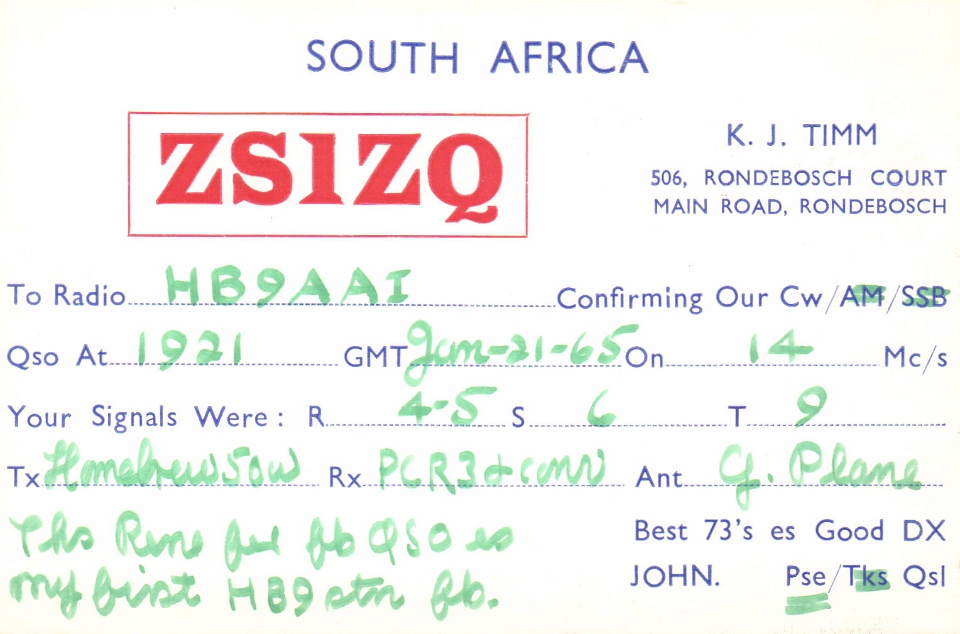 SOUTH AFRICA
ZS1ZQ
K. J. TIMM
506, RONDEBOSCH COURT
MAIN ROAD, RONDEBOSCH
To Radio HB9AAI Confirming Our Cw/AM/SSB
Qso At 1921 GMT Jan-21-65 On 14 Mc/s
Your Signals Were: R 4-5 S 6 T 9
Tx Homebrew 50W Rx PCR3 & conv Ant G. Plane
Tks Rene fer fb QSO es
my first HB9 stn fb.
Best 73's es Good DX
JOHN. Pse/Tks Qsl